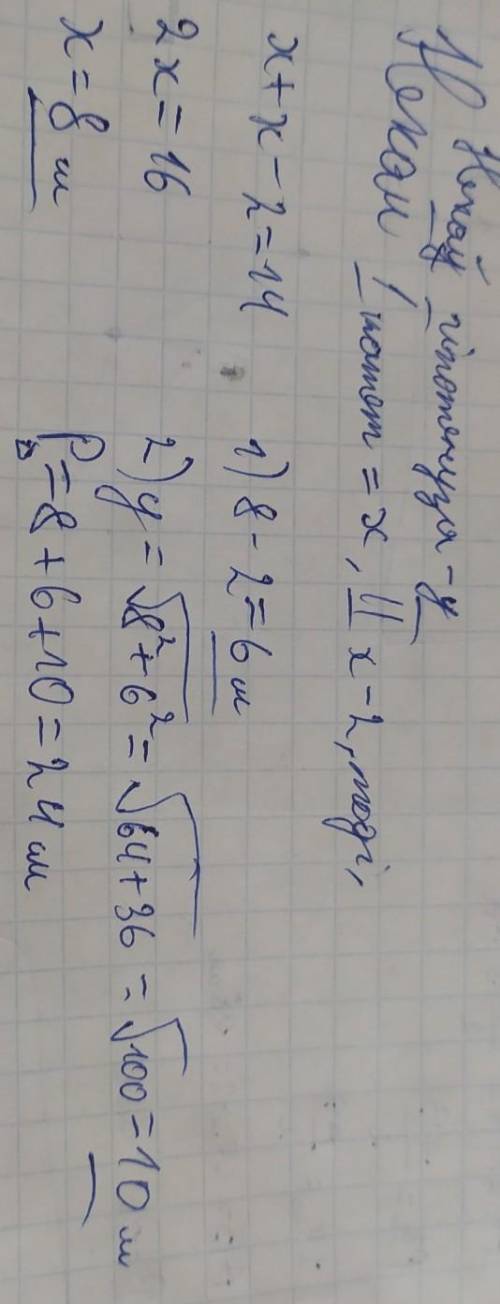 Нехай гіпотенуза - y
Нехай I катет = x, II x - 2, тоді,
x + x - 2 = 14
2x = 16
x = 8 м
1) 8 - 2 = 6 м
2) y = √8² + 6² = √64 + 36 = √100 = 10 м
P△ = 8 + 6 + 10 = 24 см